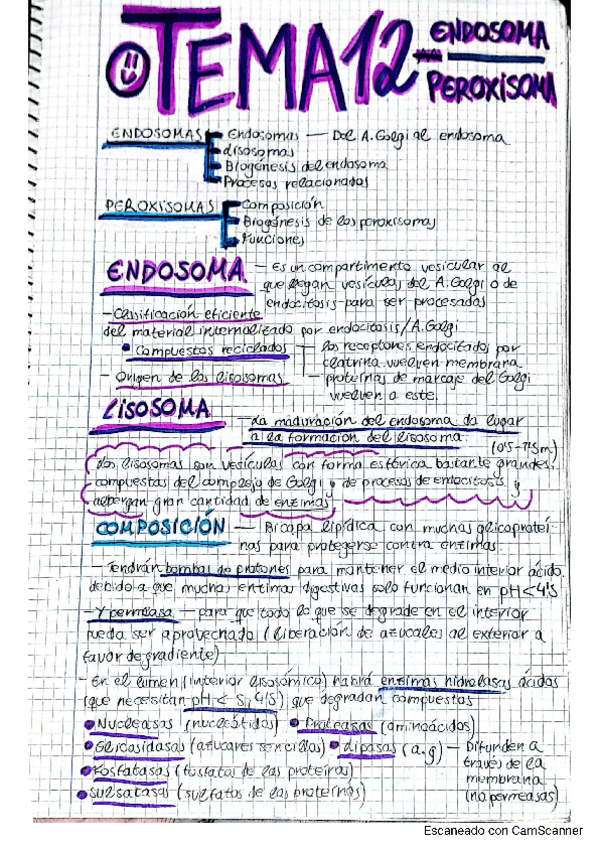 TEMA 12 - ENDOSOMA
PEROXISOMA
ENDOSOMAS Endosomas — Del A. Golgi al endosoma
Lisosomas
Biogénesis del endosoma
Procesos relacionados
PEROXISOMAS Composición
Biogénesis de los peroxisomas
Funciones
ENDOSOMA — Es un compartimento vesicular al
que llegan vesículas del A. Golgi o de
endocitosis para ser procesadas
- Clasificación eficiente
del material internalizado por endocitosis/A. Golgi
• Compuestos reciclados — los receptores endocitados por
clatrina vuelven membrana
- Origen de los lisosomas — proteínas de marcaje del Golgi
vuelven a este.
LISOSOMA — La maduración del endosoma da lugar
a la formación del lisosoma.
Los lisosomas son vesículas con forma esférica bastante grandes,
compuestas del complejo de Golgi y de procesos de endocitosis y
albergan gran cantidad de enzimas
COMPOSICIÓN — Bicapa lipídica con muchas glicoproteí-
nas para protegerse contra enzimas.
- Tendrán bombas de protones para mantener el medio interior ácido,
debido a que muchas enzimas digestivas solo funcionan en pH<4'5
- Y permeasa — para que todo lo que se degrade en el interior
pueda ser aprovechado (liberación de azucales al exterior a
favor de gradiente)
- En el lumen (interior lisosómico) habrá enzimas hidrolasas ácidas
(que necesitan pH < 5, 4'5) que degradan compuestos
• Nucleasas (nucleótidos) • Proteasas (aminoácidos)
• Glicosidasas (azúcares sencillos) • Lipasas (a.g) — Difunden a
través de la
• Fosfatasas (fosfato de las proteínas) membrana
• Sulfatasas (sulfatos de las proteínas) (no permeasas)
Escaneado con CamScanner